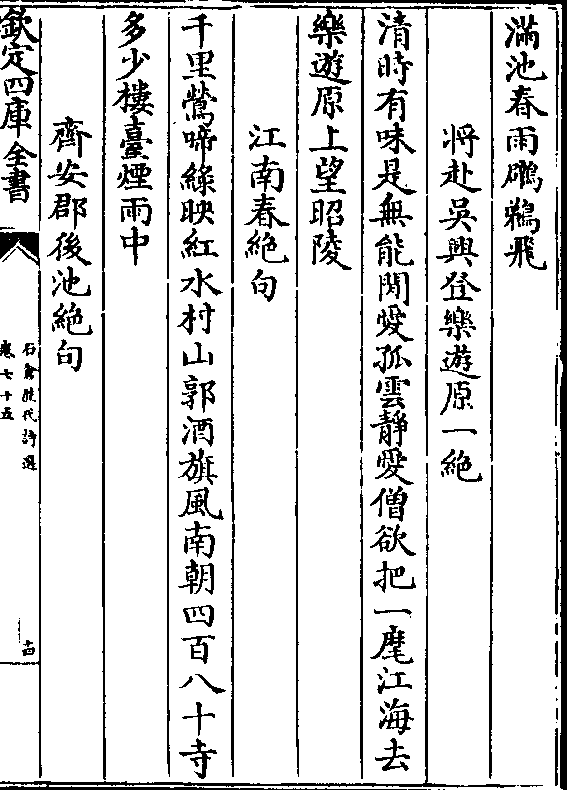 滿池春雨鸊鷉飛
將赴吳興登樂遊原一絶
清時有味是無能閒愛孤雲靜愛僧欲把一麾江海去
樂遊原上望昭陵
江南春絶句
千里鶯啼緑映紅水村山郭酒旗風南朝四百八十寺
多少樓臺煙雨中
齊安郡後池絶句
欽定四庫全書
石倉歴代詩選
卷七十五
十四